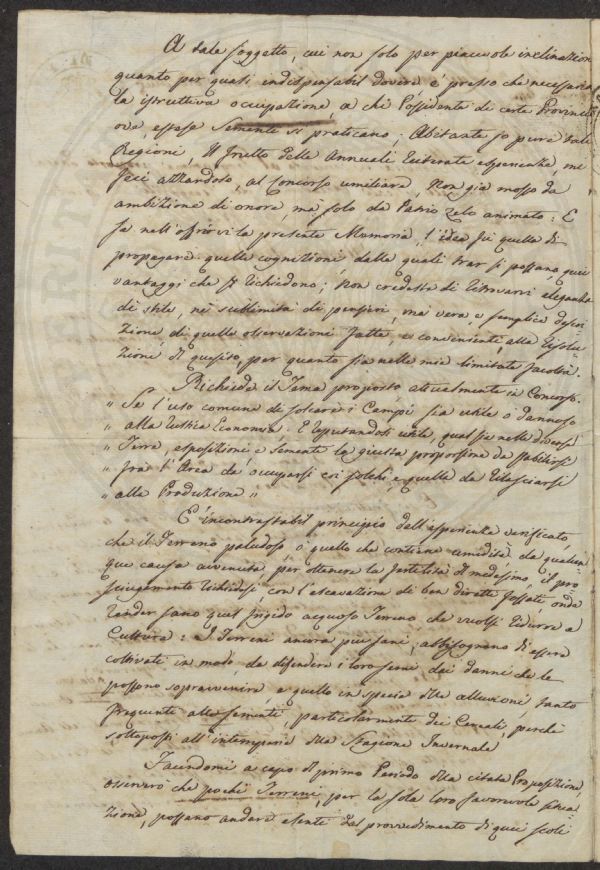 A dale soggetto, cui non solo per piacevole inclinazion
quanto per quasi indispensabil dovere è presso che necessaria
la istruttiva occupazione, a chi Possidente di certe Provincie
ove, estese Semente si praticano; Abitante io pure tali
Regioni, Il frutto delle Annuali reiterate esperienze, mi
feci azzardoso, al Concorso umiliare, Non già mosso da
ambizione di onore, ma solo da Patrio zelo animato: E
fu nell'offrirvi la presente Memoria, l'idea sù quella di
propagare quelle cognizioni dalle quali trar si possano quei
vantaggi che si richiedono; Non credasi di ritrovarvi eleganza
di stile, nè sublimità di pensieri, ma vera, e semplice descri
zione di quelle osservazioni fatte, e convenienti alla Risolu
zione di quesito, per quanto sia nelle mie limitate facoltà.
Richiede il Tema proposto attualmente in Concorso.
" Se l'uso comune di solcare i Campi sia utile o dannoso
" alla rustica Economia. E reputandosi utile, qual sia nelle diverse
" Terre, esposizioni e semente la giusta proporzione da stabilirsi
" fra l'Area da occuparsi coi solchi, e quella da rilasciarsi
" alla Produzione "
È incontrastabil principio dall'esperienza verificato,
che il Terreno paludoso, o quello che contiene umidità da qualun
que causa avvenuta, per ottenere la fertilità di medesimo, il pro
sciugamento richiedesi, con l'escavazione di ben dirette fossate, onde
render sano quel frigido acquoso Terreno che vuolsi ridurre a
Cultura: I Terreni ancora più sani, abbisognano di essere
coltivati in modo, da difendere i loro semi dai danni che le
possono sopravvenire, e quello in specie dlle alluvioni, tanto
frequenti alle sementi, particolarmente dei Cereali, perchè
sottoposti all'intemperie dlla Stagione Invernale
Facendomi a capo di primo Periodo dlla citata Proposizione,
osservo che pochi Terreni, per la sola loro favorevole situa
zione, possano andare esente dal provvedimento di quei scoli